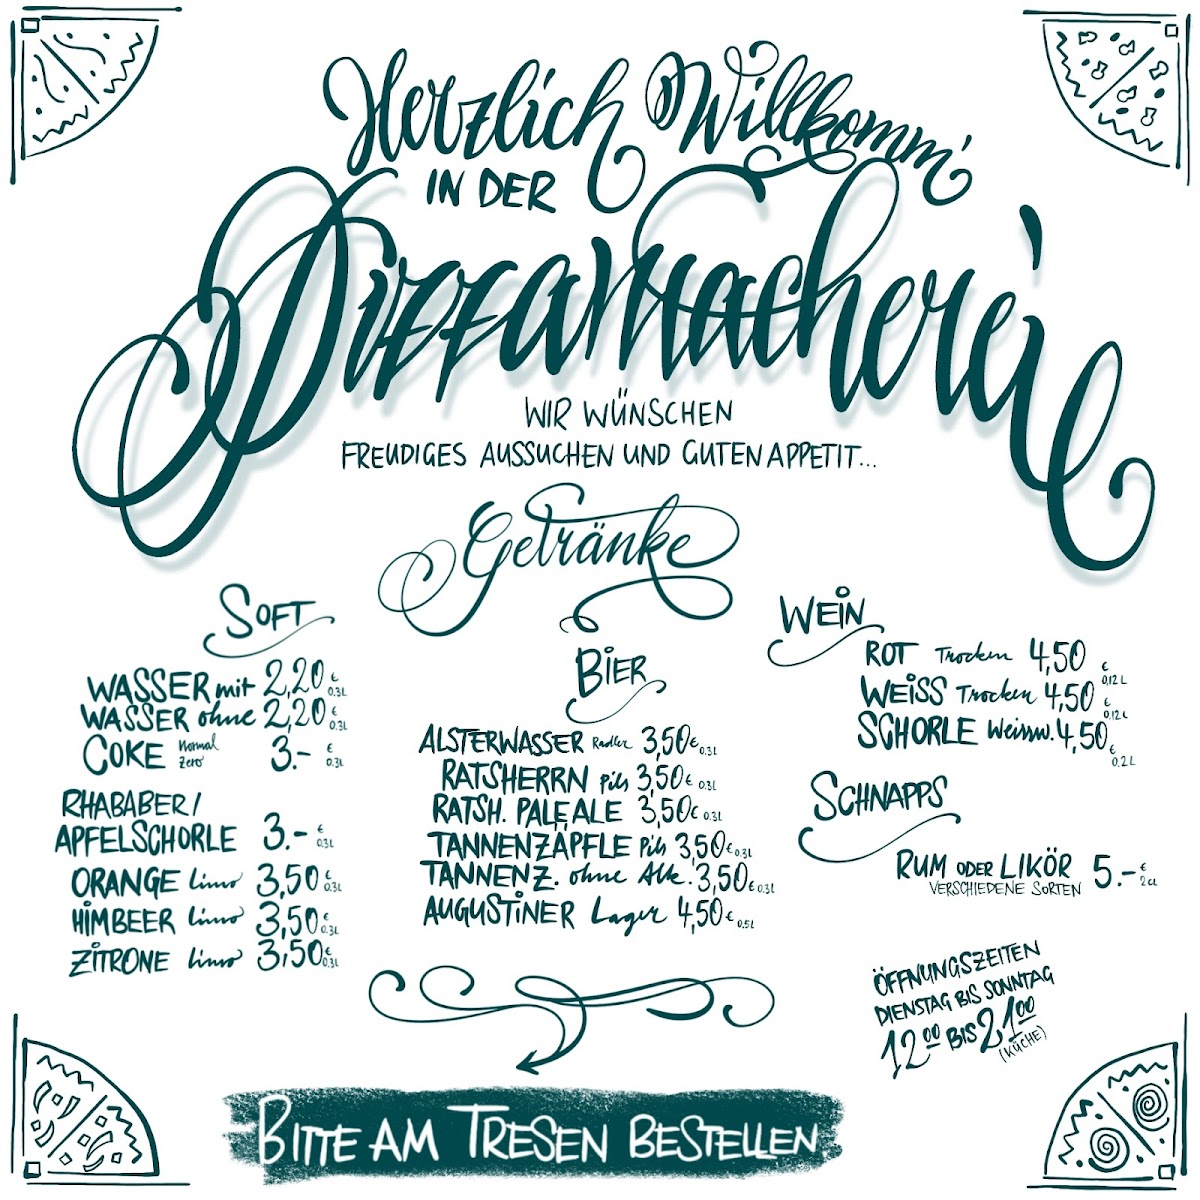 Herzlich Willkomm'
IN DER
Pizzamacherei
WIR WÜNSCHEN
FREUDIGES AUSSUCHEN UND GUTEN APPETIT...
Getränke
SOFT
WASSER mit 2,20 € 0,3L
WASSER ohne 2,20 € 0,3L
COKE Normal Zero 3.- € 0,3L
RHABABER/
APFELSCHORLE 3.- € 0,3L
ORANGE Limo 3,50 € 0,3L
HIMBEER Limo 3,50 € 0,3L
ZITRONE Limo 3,50 € 0,3L
BIER
ALSTERWASSER Radler 3,50 € 0,3L
RATSHERRN Pils 3,50 € 0,3L
RATSH. PALE ALE 3,50 € 0,3L
TANNENZÄPFLE Pils 3,50 € 0,3L
TANNENZ. ohne Alk. 3,50 € 0,3L
AUGUSTINER Lager 4,50 € 0,5L
WEIN
ROT Trocken 4,50 € 0,12L
WEISS Trocken 4,50 € 0,12L
SCHORLE Weissw. 4,50 € 0,2L
SCHNAPPS
RUM ODER LIKÖR 5.- € 2cl
VERSCHIEDENE SORTEN
ÖFFNUNGSZEITEN
DIENSTAG BIS SONNTAG
12 00 BIS 21 00
(KÜCHE)
BITTE AM TRESEN BESTELLEN